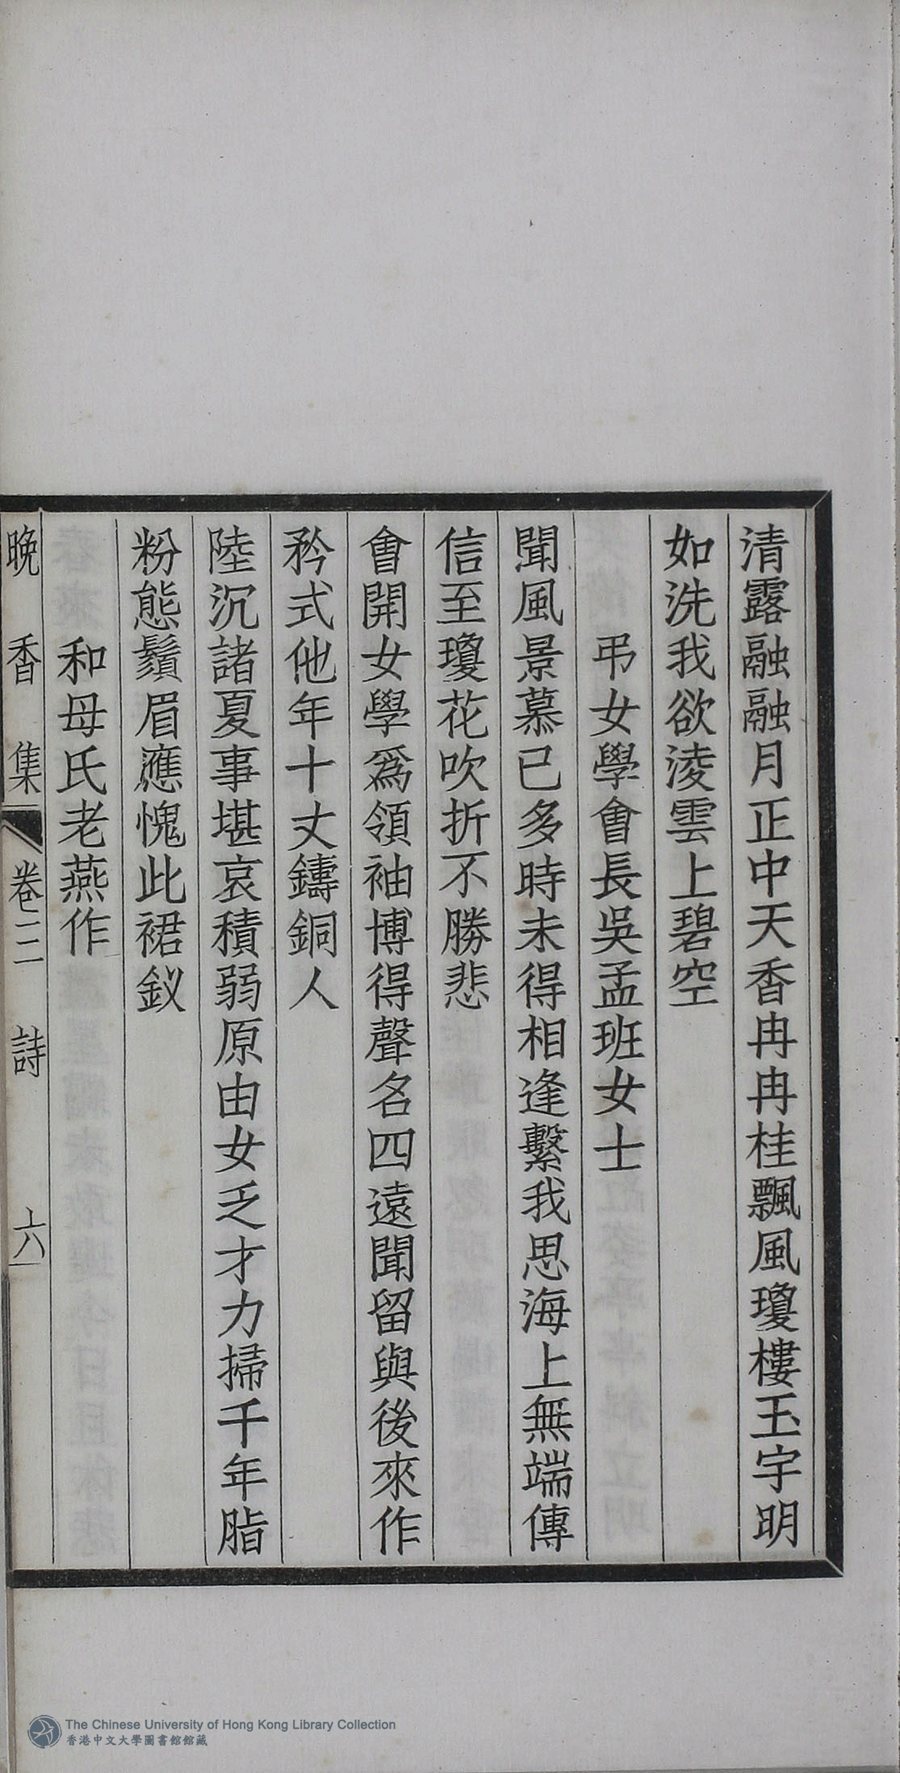 清露融融月正中天香冉冉桂飄風瓊樓玉宇明
如洗我欲淩雲上碧空
弔女學會長吳孟班女士
聞風景慕已多時未得相逢繫我思海上無端傳
信至瓊花吹折不勝悲
會開女學爲領袖博得聲名四遠聞留與後來作
矜式他年十丈鑄銅人
陸沉諸夏事堪哀積弱原由女乏才力掃千年脂
粉態鬚眉應愧此裙釵
和母氏老燕作
晚香集 卷三 詩 六
The Chinese University of Hong Kong Library Collection
香港中文大學圖書館館藏